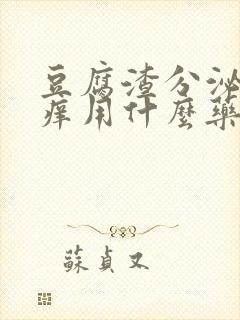 豆腐渣分泌
痒用什麼藥
蘇貞又